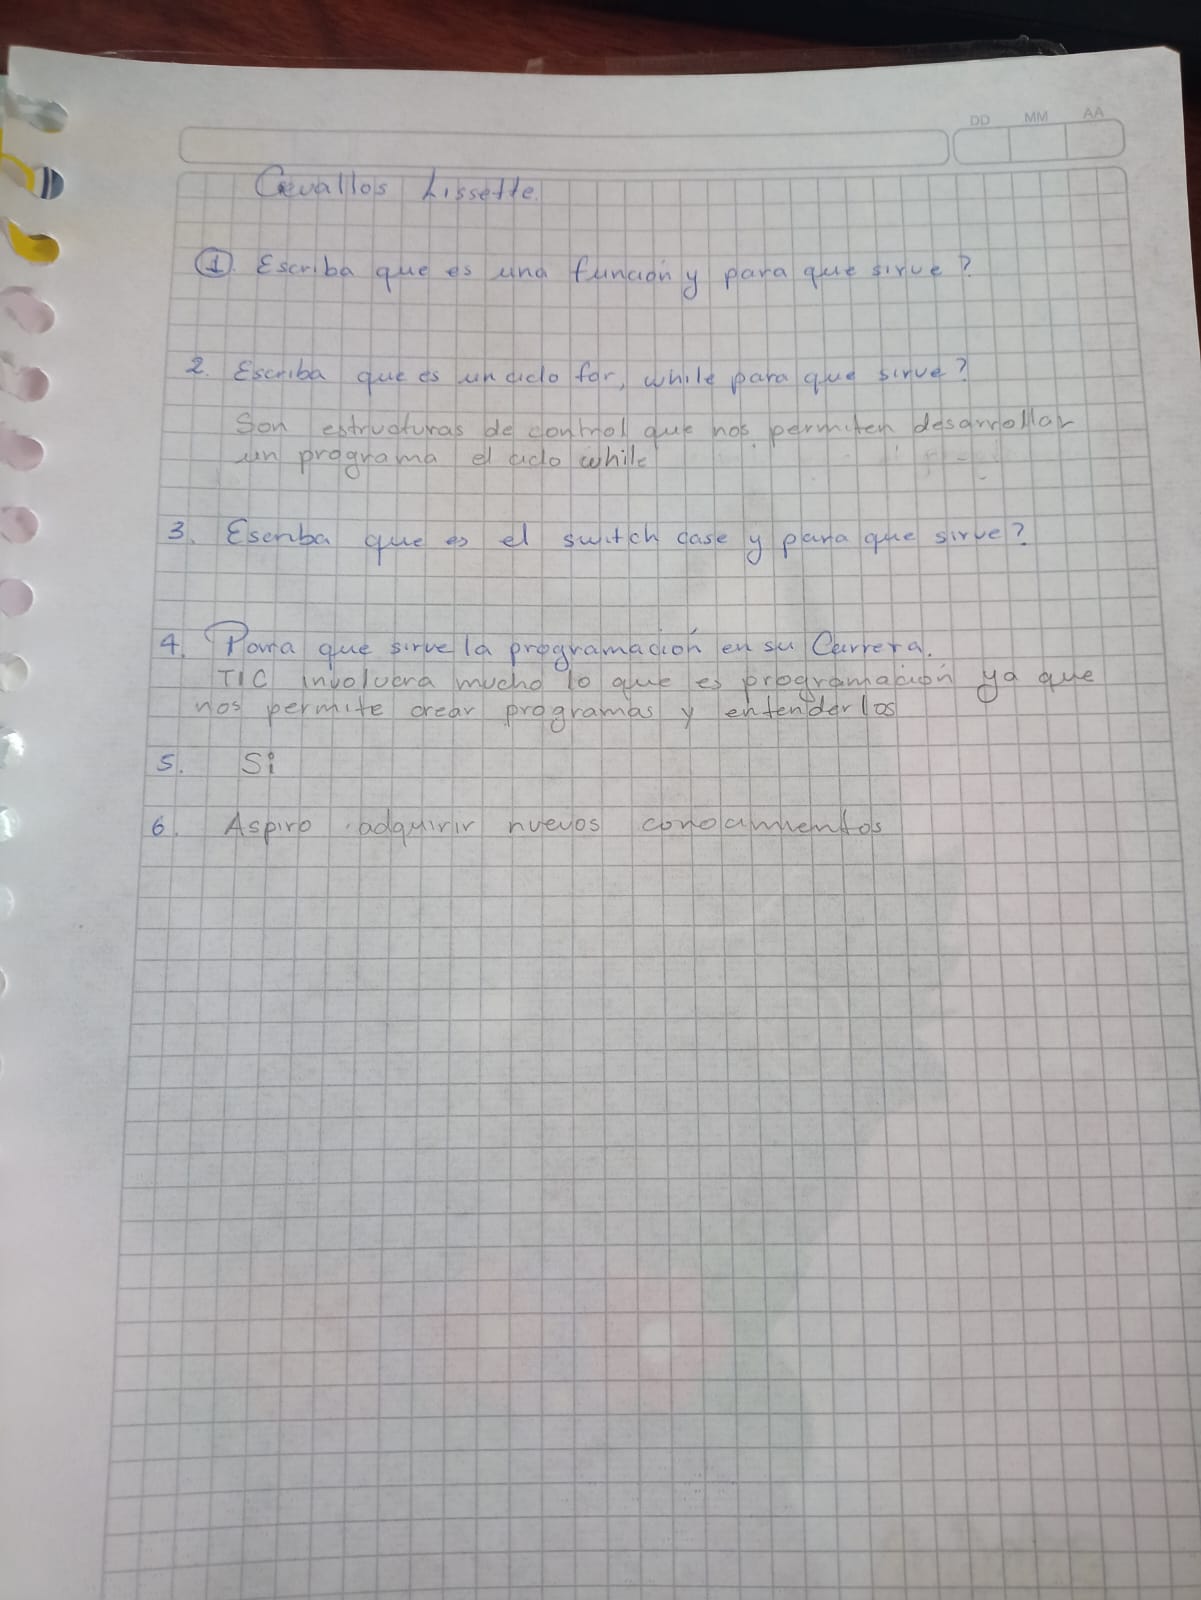 DD MM AA
Cevallos Lissette.
1. Escriba que es una función y para que sirve?
2. Escriba que es un ciclo for, while para que sirve?
Son estructuras de control que nos permiten desarrollar
un programa el ciclo while
3. Escriba que es el switch case y para que sirve?
4. Para que sirve la programación en su Carrera.
TIC involucra mucho lo que es programación ya que
nos permite crear programas y entenderlos
5. Si
6. Aspiro adquirir nuevos conocimientos